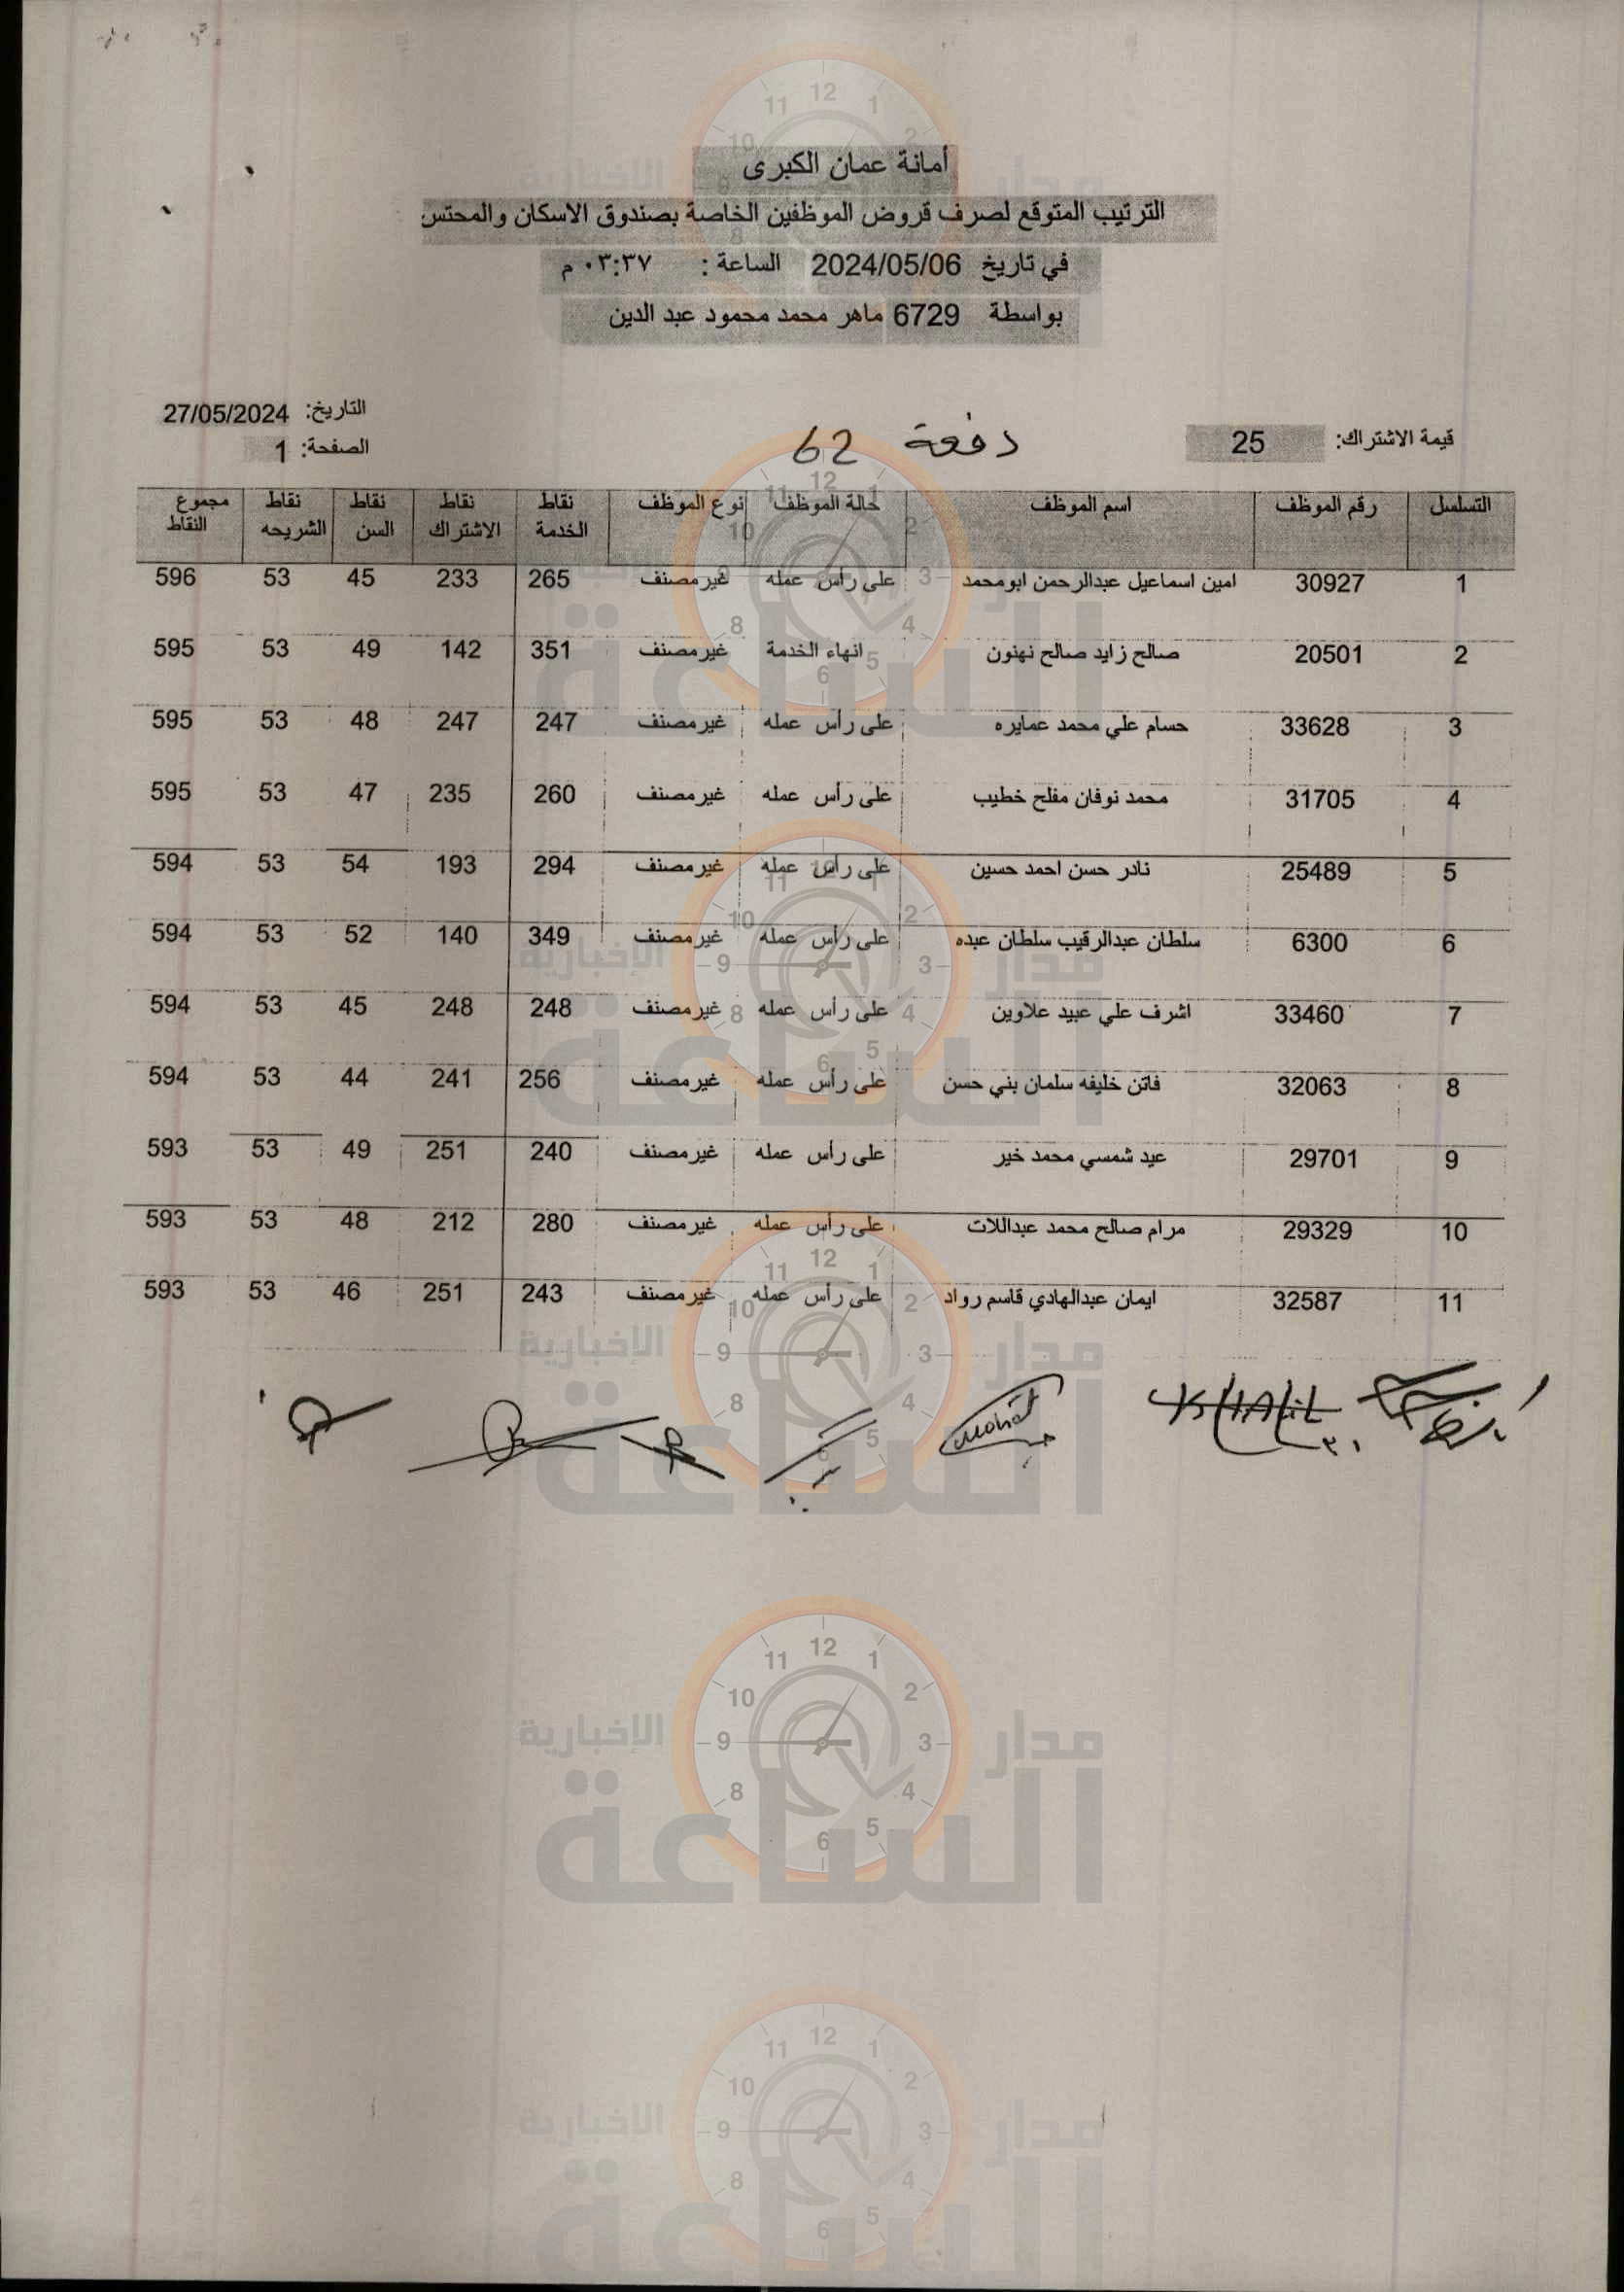 أمانة عمان الكبرى
الترتيب المتوقع لصرف قروض الموظفين الخاصة بصندوق الاسكان والمحتس
في تاريخ 2024/05/06 الساعة : ٠٣:٣٧ م
بواسطة 6729 ماهر محمد محمود عبد الدين
التاريخ: 27/05/2024
قيمة الاشتراك: 25 دفعة 62 الصفحة: 1
التسلسل رقم الموظف اسم الموظف حالة الموظف نوع الموظف نقاط الخدمة نقاط الاشتراك نقاط السن نقاط الشريحه مجموع النقاط
1 30927 امين اسماعيل عبدالرحمن ابومحمد على رأس عمله غير مصنف 265 233 45 53 596
2 20501 صالح زايد صالح نهنون انهاء الخدمة غير مصنف 351 142 49 53 595
3 33628 حسام علي محمد عمايره على رأس عمله غير مصنف 247 247 48 53 595
4 31705 محمد نوفان مفلح خطيب على رأس عمله غير مصنف 260 235 47 53 595
5 25489 نادر حسن احمد حسين على رأس عمله غير مصنف 294 193 54 53 594
6 6300 سلطان عبدالرقيب سلطان عبده على رأس عمله غير مصنف 349 140 52 53 594
7 33460 اشرف علي عبيد علاوين على رأس عمله غير مصنف 248 248 45 53 594
8 32063 فاتن خليفه سلمان بني حسن على رأس عمله غير مصنف 256 241 44 53 594
9 29701 عيد شمسي محمد خير على رأس عمله غير مصنف 240 251 49 53 593
10 29329 مرام صالح محمد عبداللات على رأس عمله غير مصنف 280 212 48 53 593
11 32587 ايمان عبدالهادي قاسم رواد على رأس عمله غير مصنف 243 251 46 53 593
مدار الساعة الإخبارية